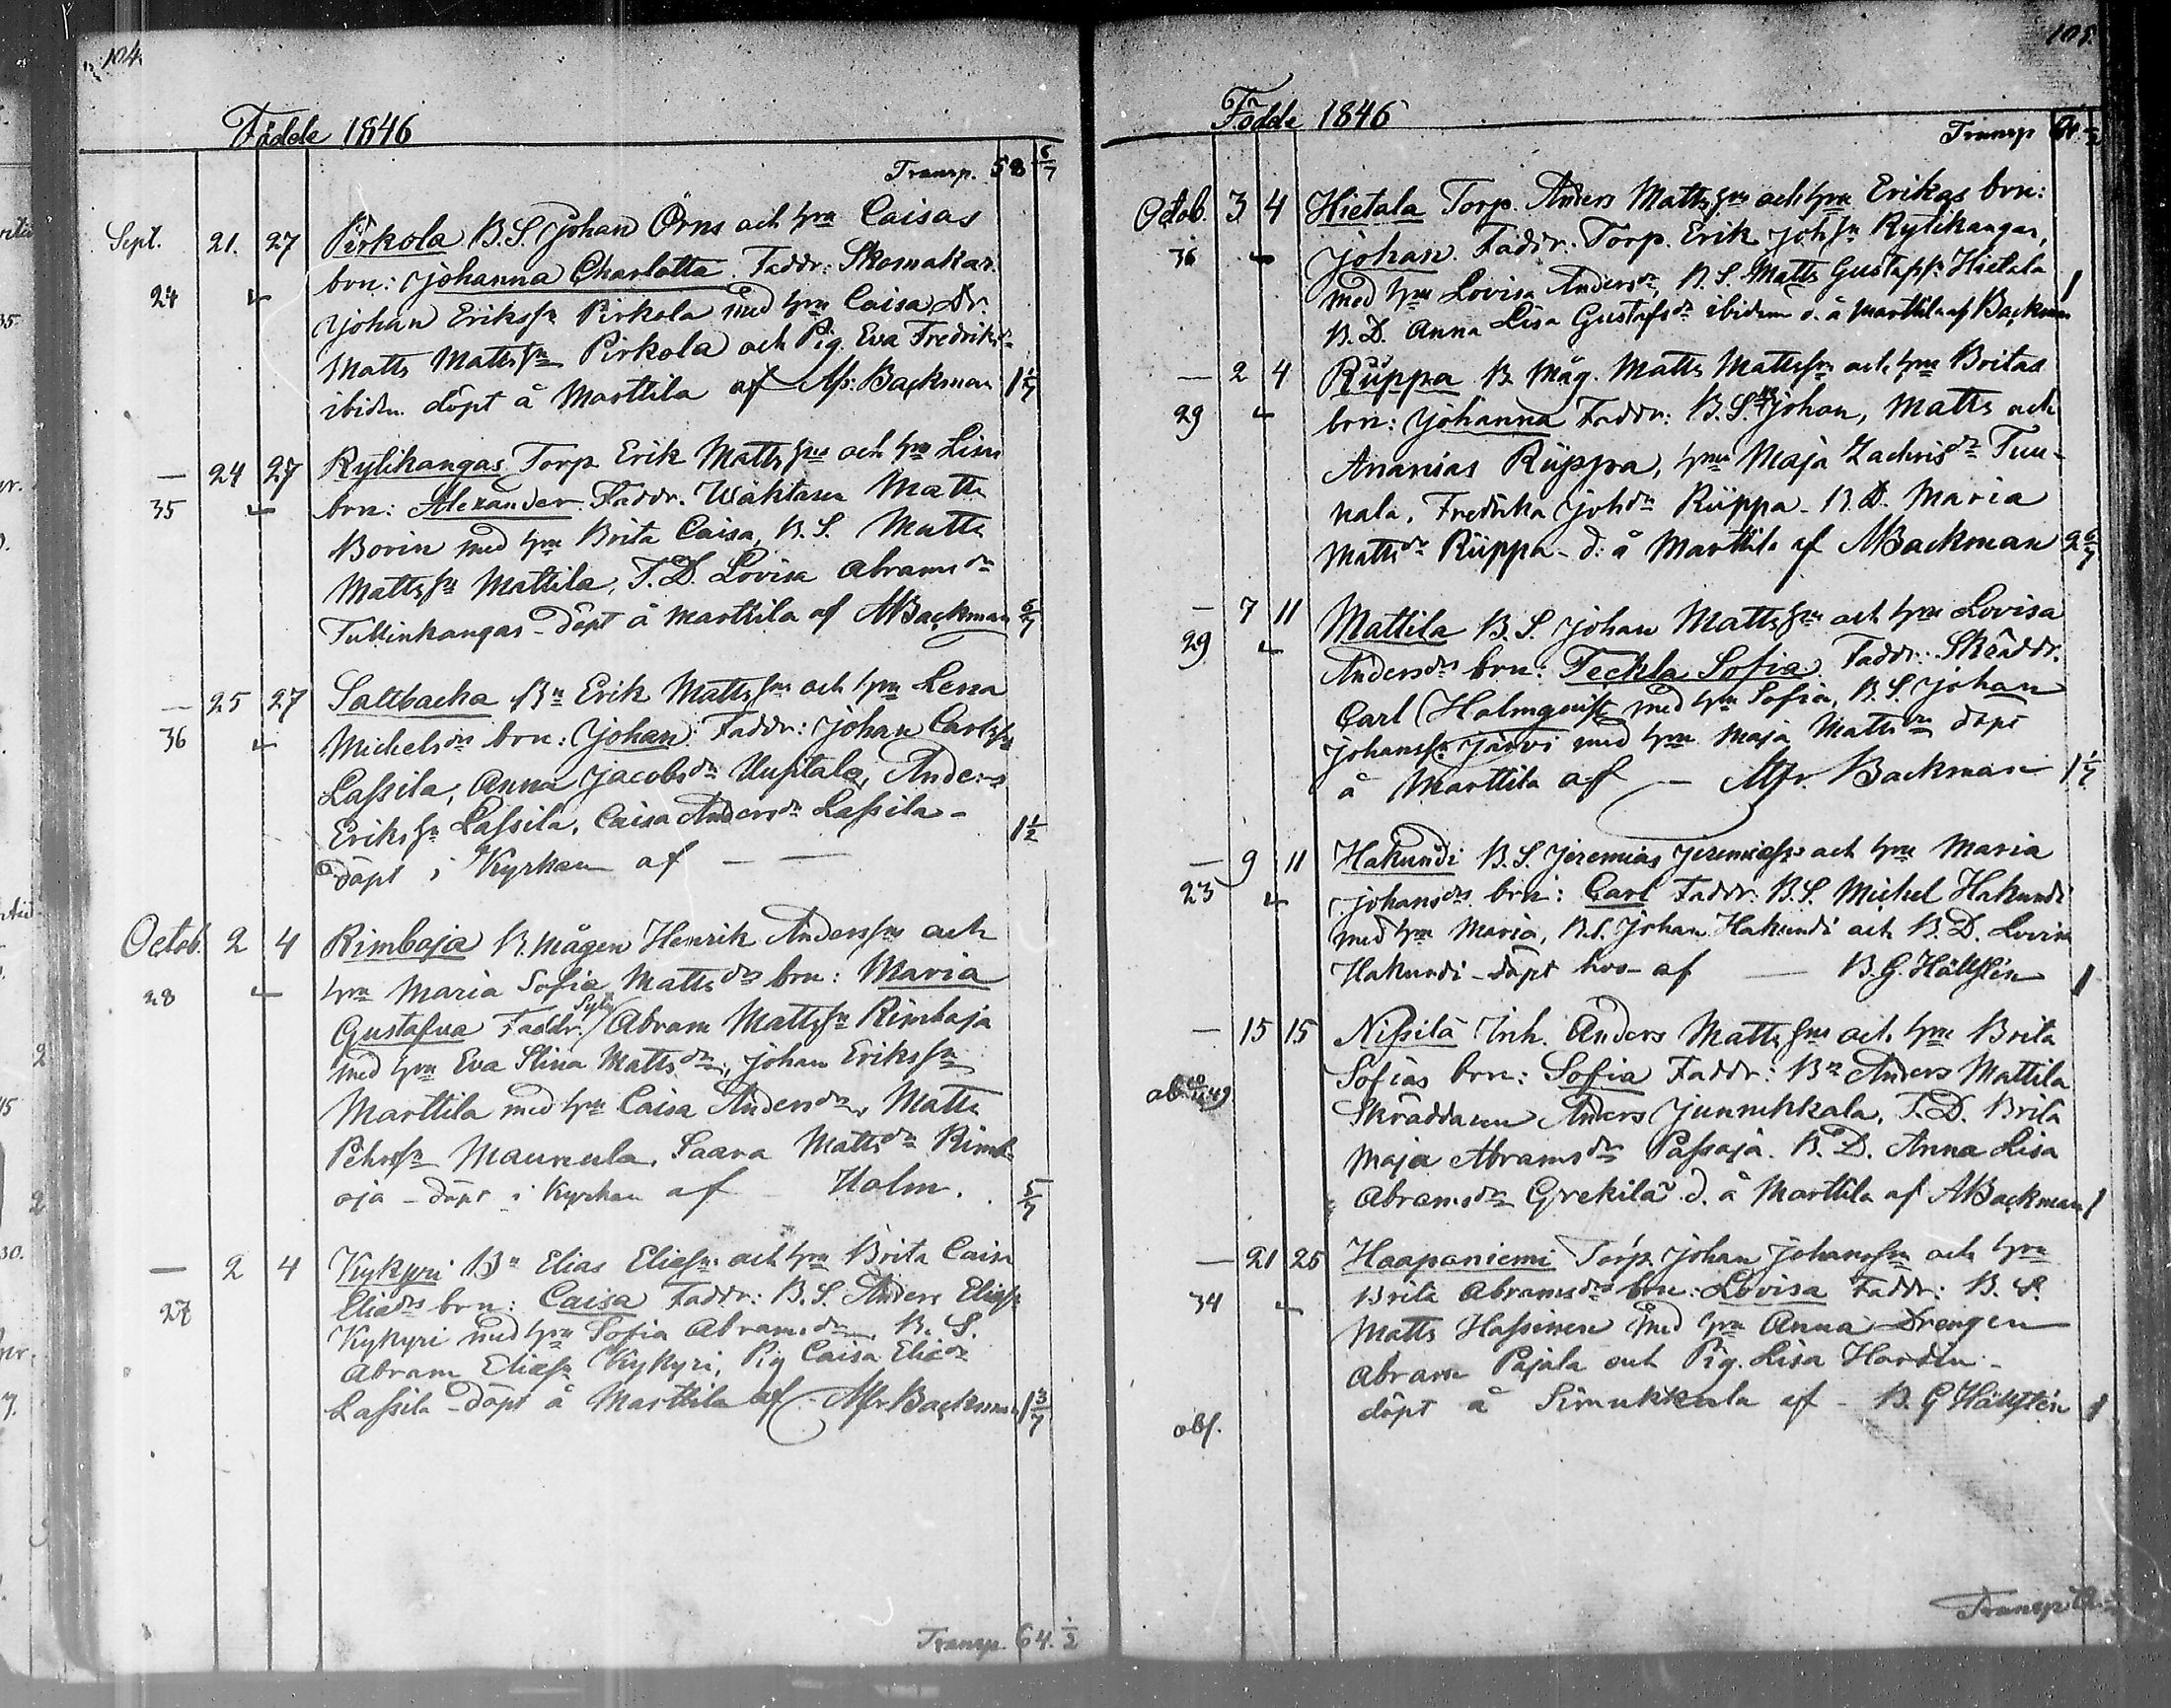 104.
Födde 1846
Transp. 58 6/7
Sept. 21. 27 Pirkola B.S. Johan Örns och hru Caisas
24 brn: Johanna Charlotta. Faddr: Skomakar.
Johan Erikssn Pirkola med hru Caisa, Dr.
Matts Mattssn Pirkola och Pig. Eva Fredriksdr
ibidm döpt å Marttila af Backman 1 1/7
— 24 27 Rytikangas Torp. Erik Mattssns och hru Lisas
35 brn: Alexander. Faddr. Wäktaren Matts
Borin med hru Brita Caisa, B.S. Matts
Mattssn Mattila, T.D. Lovisa Abramsdr
Tullinkangas - döpt å Marttila af Backman 6/7
— 25 27 Saltbacka Bn Erik Mattssns och hru Lena
36 Michelsdrs brn: Johan. Faddr: Johan Carlssn
Lassila, Anna Jacobsdr Uusitalo, Anders
Erikssn Lassila, Caisa Andersdr Lassila - 1 1/2
döpt i Kyrkan af — —
Octob. 2 4 Rimbaja B. mågen Henrik Anderssns och
28 hru Maria Sofia Mattsdrs brn: Maria
Gustafva Faddr. Abram Mattssn Rimbaja
med hru Eva Stina Mattsdr, Johan Erikssn
Marttila med hru Caisa Andersdr, Matts
Pehrssn Maunula, Saara Mattsdr Rimb-
aja - döpt i Kyrkan af — Holm. 5/7
— 2 4 Kykyri Bn Elias Eliassns och hru Brita Caisa
27 Eliædrs brn: Caisa Faddr: B.S. Anders Eliassn
Kykyri med hru Sofia Abramsdr, B.S.
Abram Eliassn Kykyri, Pig Caisa Eliædr
Lassila - döpt å Marttila af Backman 1 3/7
Transp. 64. 1/2
105.
Födde 1846
Transp 64. 1/2
Octob. 3 4 Hietala Torp. Anders Mattssns och hru Erikas brn:
36 Johan. Faddr. Torp. Erik Johssn Rytikangas,
med hru Lovisa Andersdr, B.S. Matts Gustafssn Hietala 1
B.D. Anna Lisa Gustafsdr ibidem d. å Marttila af Backman
— 2 4 Rüppa B. Måg. Matts Mattssns och hru Britas
29 brn: Johanna Faddr: B.S. Johan, Matts och
Ananias Rüppa, hru Maja Zachrisdr Tuu-
nala, Fredrika Johsdr Rüppa - B.D. Maria
Mattsdr Rüppa - d: å Marttila af Backman 2 6/7
— 7 11 Mattila B.S. Johan Mattssns och hru Lovisa
29 Andersdrs brn: Teckla Sofia. Faddr: Skräddr.
Carl Holmquist med hru Sofia, B.S. Johan
Johanssn Järvi med hru Maja Mattsdr döpt
å Marttila af — Backman 1 1/7
— 9 11 Hakundi B.S. Jeremias Jeremiassns och hru Maria
23 Johansdrs brn: Carl Faddr. B.S. Michel Hakundi
med hru Maria, B.S. Johan Hakundi och B.D. Lovisa
Hakundi - döpt hos af — B.G. Hällsten 1
— 15 15 Nissilä Inh. Anders Mattssns och hru Brita
Sofias brn: Sofia Faddr: Bn Anders Mattila
Skräddaren Anders Junnikkala, T.D. Brita
Maja Abramsdr Passaja. B.D. Anna Lisa
Abramsdr Grekilä d. å Marttila af Backman 1
— 21 25 Haapaniemi Torp. Johan Johanssns och hru
34 Brita Abramsdrs brn: Lovisa Faddr: B.S.
Matts Hassinen med hru Anna Drengen
Abram Pajala och Pig. Lisa Harden -
döpt å Simukkala af - B.G Hällsten 1
obs.
Transp